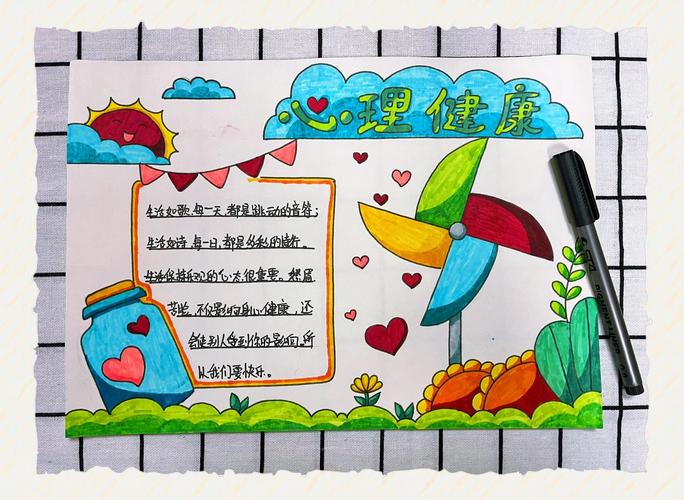 心理健康
生活如歌,每一天,都是跳动的音符;
生活如诗,每一日,都是多彩的诗行。
生活保持乐观的心态很重要,愁眉
苦脸,不仅影响身心健康,还
会使别人受到你的影响,所
以我们要快乐。